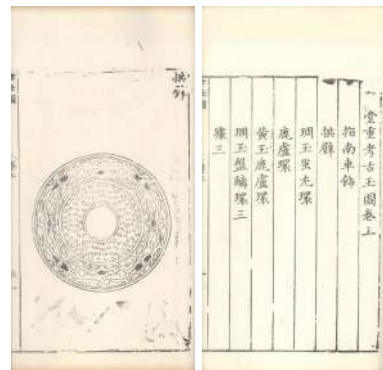 堂重考古玉圖卷上
指南車飾
拱璧
琱玉蚩尤環
鹿盧環
黃玉鹿盧環
琱玉盤螭環三
璩三
拱璧